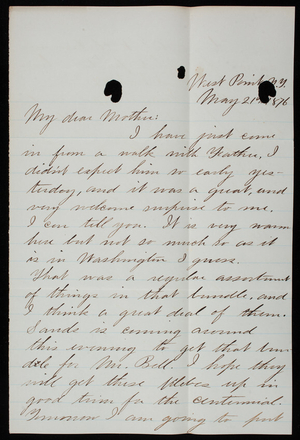 West Point, N.Y.
May 21st 1876
My dear Mother:
I have just come
in from a walk with Father, I
didn't expect him so early yes-
terday, and it was a great, and
very welcome surprise to me.
I can tell you. It is very warm
here but not so much so as it
is in Washington I guess.
That was a regular assortment
of things in that bundle, and
I think a great deal of them.
Sands is coming around
this evening to get that bun
dle for Mr. Bell. I hope they
will get these Plebes up in
good trim for the centennial.
Tomorrow I am going to put